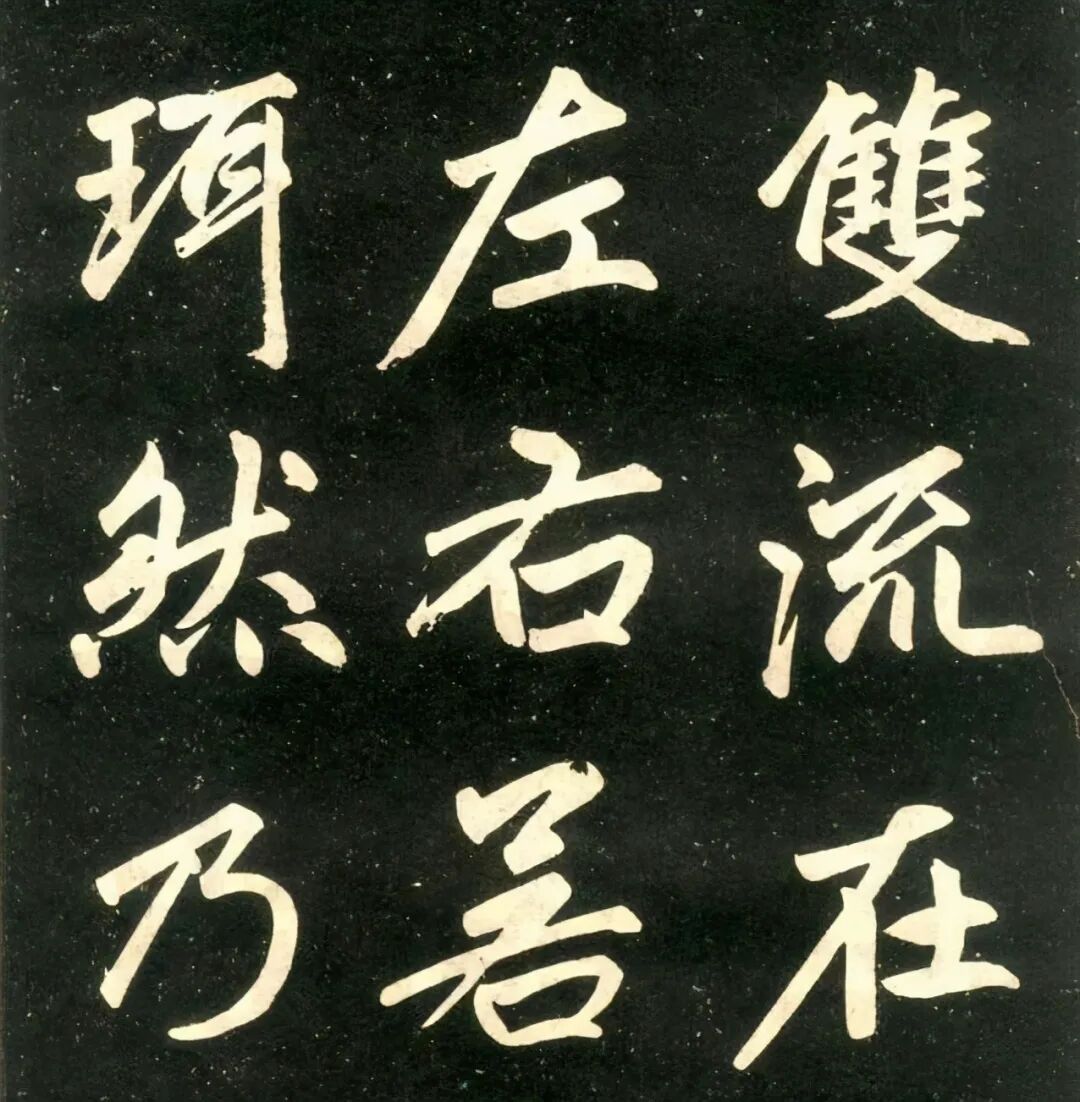 雙流在
左右若
珥然乃